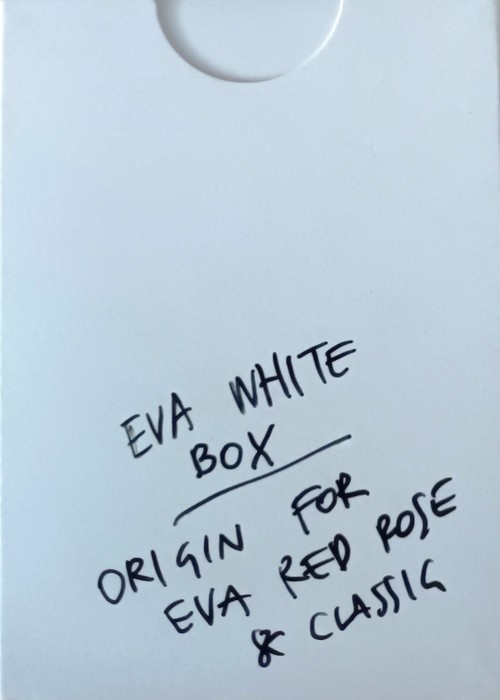 EVA WHITE
BOX
ORIGIN FOR
EVA RED ROSE
& CLASSIC